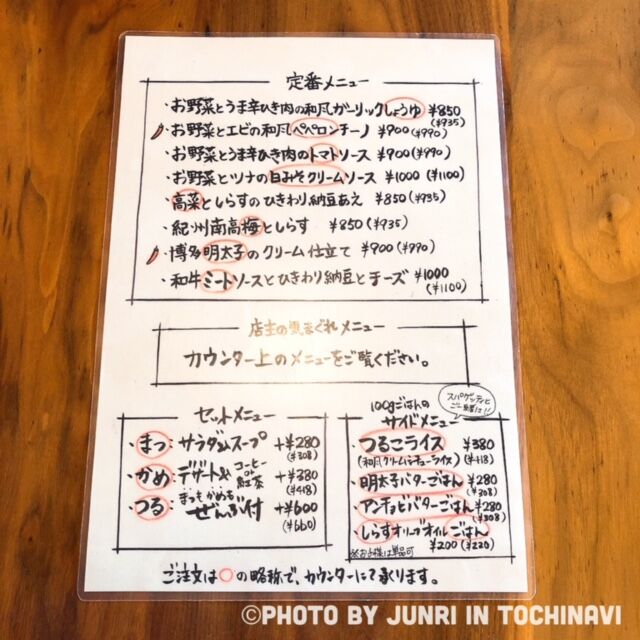 定番メニュー
・お野菜とうま辛ひき肉の和風ガーリックしょうゆ ¥850
(¥935)
お野菜とエビの和風ペペロンチーノ ¥900(¥990)
・お野菜とうま辛ひき肉のトマトソース ¥900(¥990)
・お野菜とツナの白みそクリームソース ¥1000 (¥1100)
・高菜としらすのひきわり納豆あえ ¥850(¥935)
・紀州南高梅としらす ¥850(¥935)
・博多明太子のクリーム仕立て ¥900(¥990)
・和牛ミートソースとひきわり納豆とチーズ ¥1000
(¥1100)
店主の気まぐれメニュー
カウンター上のメニューをご覧ください。
セットメニュー
・まつ:サラダ&スープ +¥280
(¥308)
・かめ:デザート& コーヒー or 紅茶 +¥380
(¥418)
・つる:まつもかめも ぜんぶ付 +¥600
(¥660)
100gごはんの
サイドメニュー
スパゲッティと
ご一緒に!!
・つるこライス ¥380
(和風クリームシチューライス) (¥418)
・明太子バターごはん ¥280
(¥308)
・アンチョビバターごはん ¥280
(¥308)
・しらすオリーブオイルごはん
※お子様は単品可 ¥200(¥220)
ご注文は○の略称で、カウンターにて承ります。
©PHOTO BY JUNRI IN TOCHINAVI